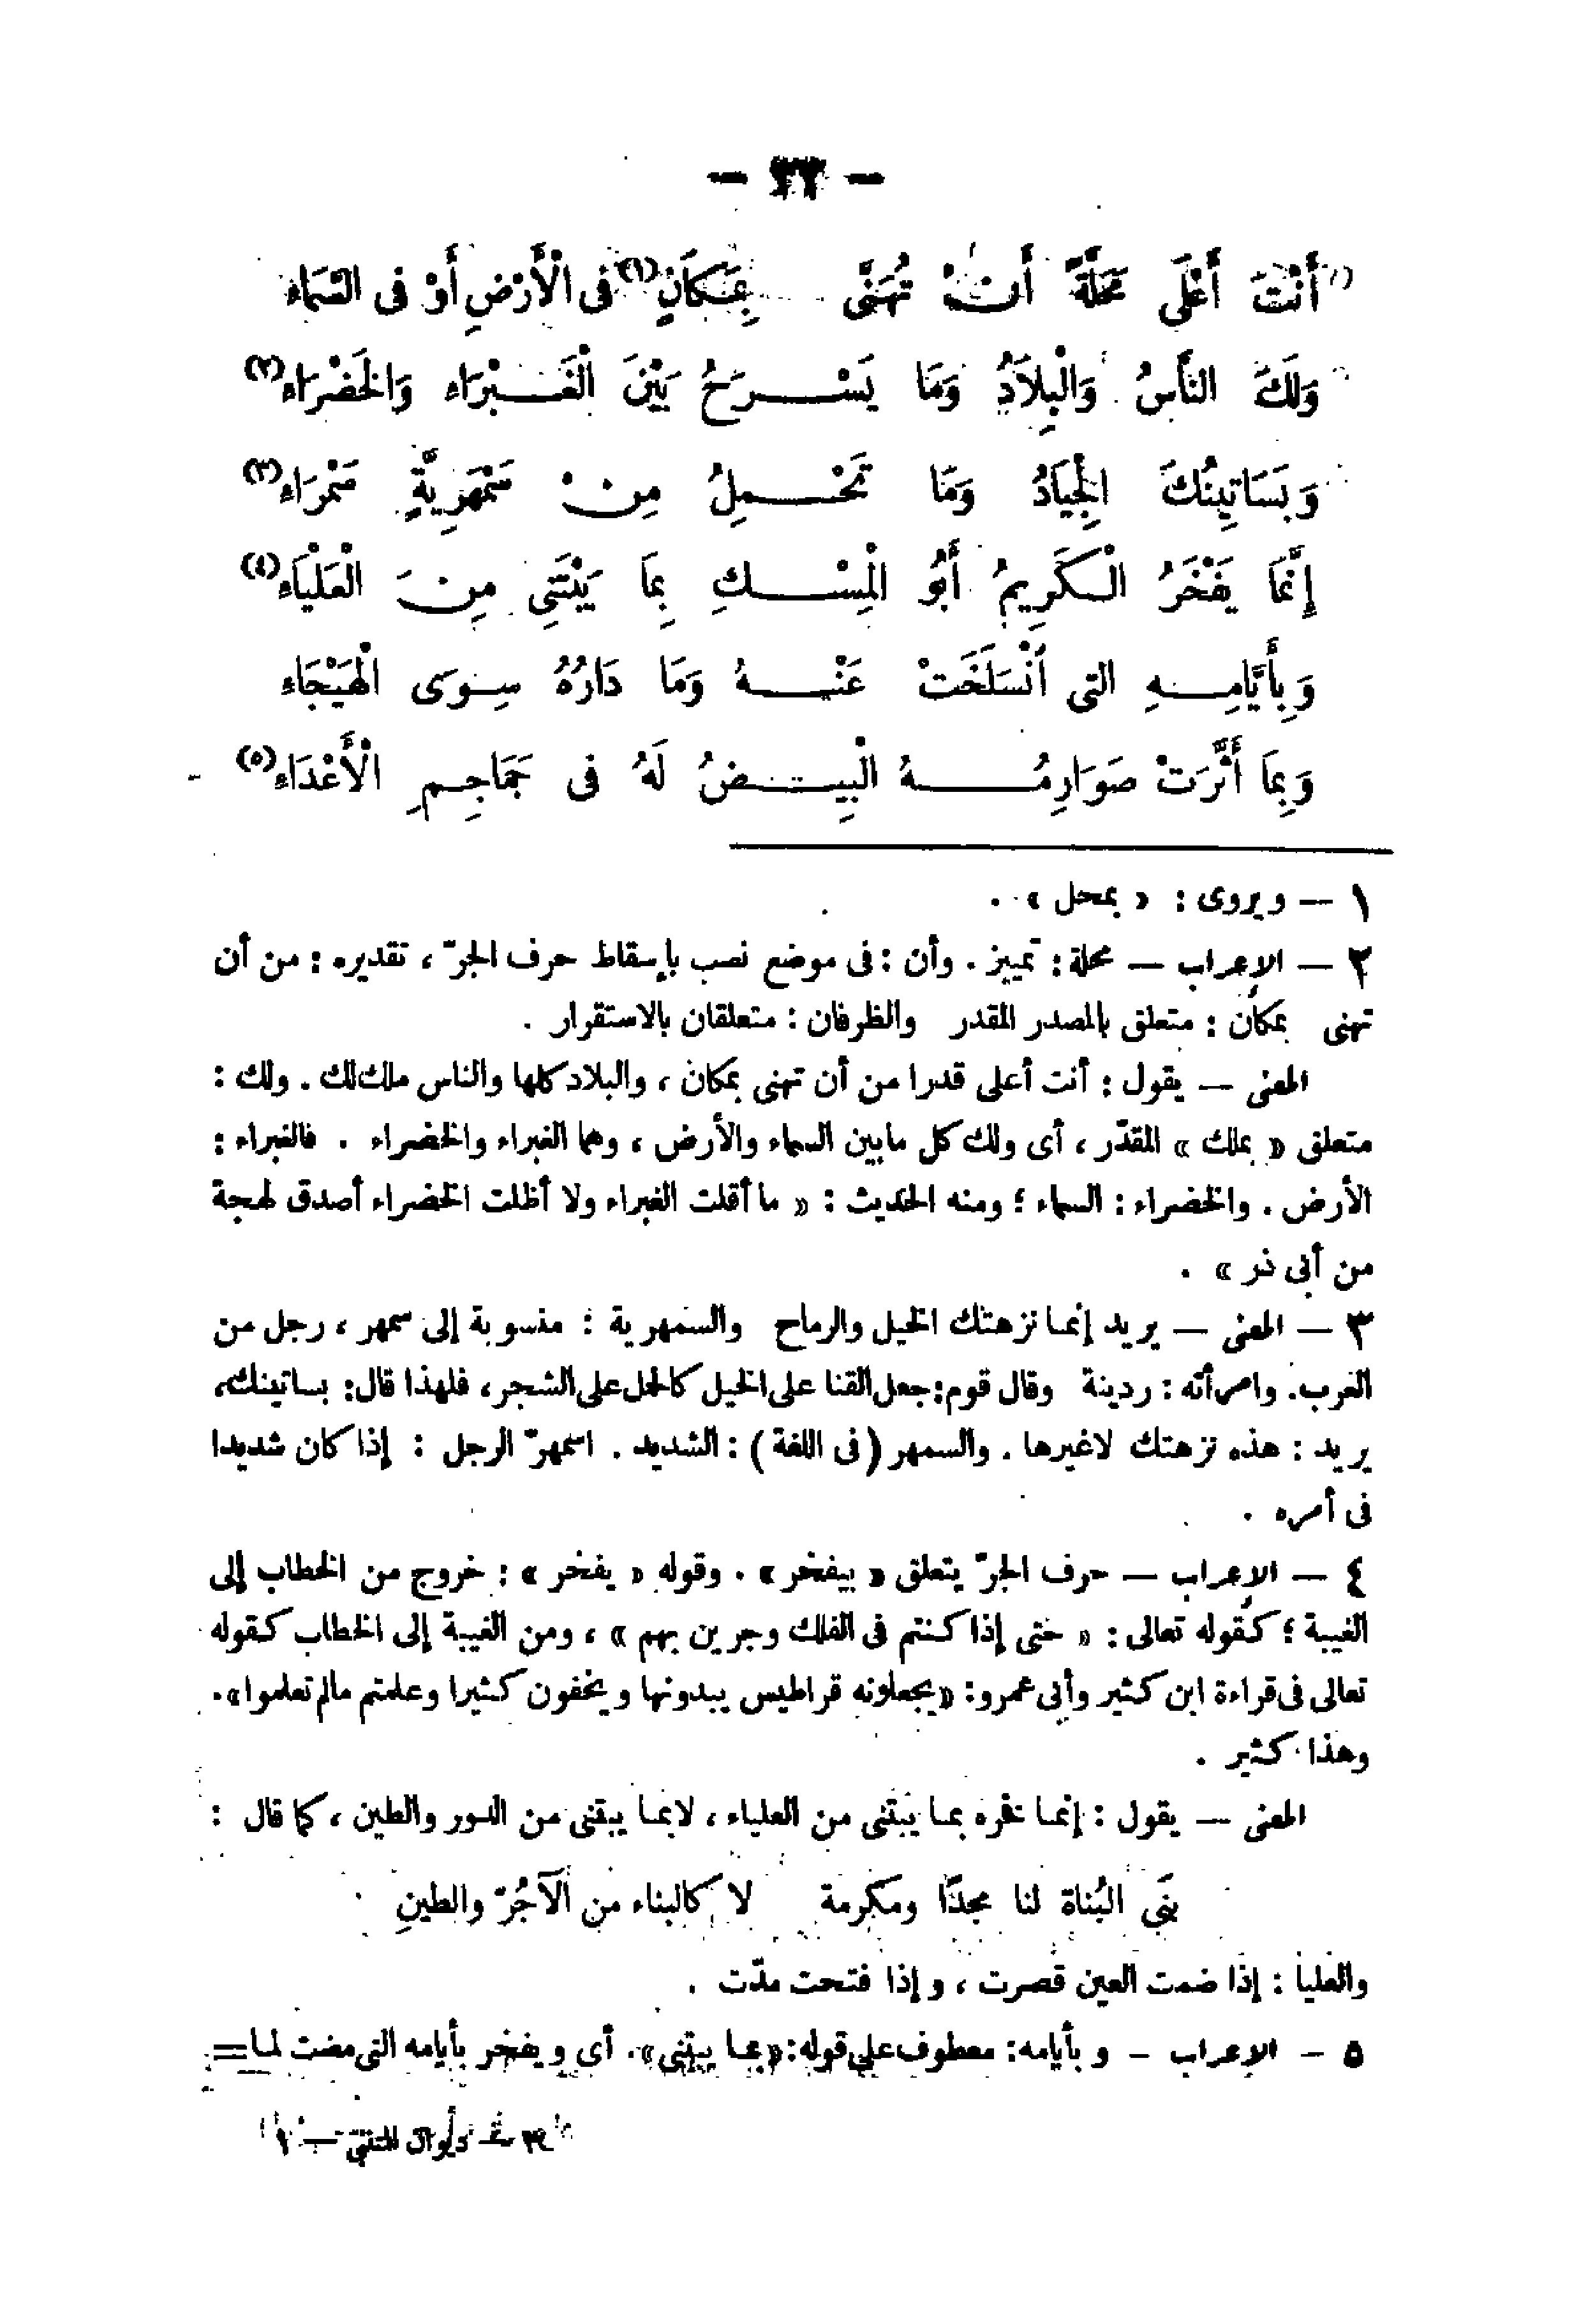 — ٣٣ —
أَنْتَ أَعْلَى مَحَلَّةً أَنْ تُهَنَّى بِمَكَانٍ(١) فى الْأَرْضِ أَوْ فى السَّمَاءِ
وَلَكَ النَّاسُ وَالْبِلَادُ وَمَا يَسْرَحُ بَيْنَ الْغَبْرَاءِ وَالْخَضْرَاءِ(٢)
وَبَسَاتِينُكَ الْجِيَادُ وَمَا تَحْمِلُ مِنْ سَمْهَرِيَّةٍ سَمْرَاءِ(٣)
إِنَّمَا يَفْخَرُ الْكَرِيمُ أَبُو الْمِسْكِ بِمَا يَبْتَنِى مِنَ الْعَلْيَاءِ(٤)
وَبِأَيَّامِهِ التى انْسَلَخَتْ عَنْهُ وَمَا دَارُهُ سِوَى الْهَيْجَاءِ
وَبِمَا أَثَّرَتْ صَوَارِمُهُ الْبِيضُ لَهُ فى جَمَاجِمِ الْأَعْدَاءِ(٥)
١ — ويروى : « بمحل » .
٢ — الإعراب — محلة : تمييز . وأن : فى موضع نصب بإسقاط حرف الجرّ ، تقديره : من أن
تهنى بمكان : متعلق بالمصدر المقدر والظرفان : متعلقان بالاستقرار .
المعنى — يقول : أنت أعلى قدرا من أن تهنى بمكان ، والبلاد كلها والناس ملك لك . ولك :
متعلق « بملك » المقدّر ، أى ولك كل مابين السماء والأرض ، وهما الغبراء والخضراء . فالغبراء :
الأرض . والخضراء : السماء ؛ ومنه الحديث : « ما أقلت الغبراء ولا أظلت الخضراء أصدق لهجة
من أبى ذر » .
٣ — المعنى — يريد إنما نزهتك الخيل والرماح والسمهرية : منسوبة إلى سمهر ، رجل من
العرب . وامرأته : ردينة وقال قوم : جعل القنا على الخيل كالحمل على الشجر ، فلهذا قال : بساتينك ،
يريد : هذه نزهتك لاغيرها . والسمهر (فى اللغة) : الشديد . اسمهرّ الرجل : إذا كان شديدا
فى أمره .
٤ — الإعراب — حرف الجرّ يتعلق « بيفخر » . وقوله « يفخر » : خروج من الخطاب إلى
الغيبة ؛ كقوله تعالى : « حتى إذا كنتم فى الفلك وجرين بهم » ، ومن الغيبة إلى الخطاب كقوله
تعالى فى قراءة ابن كثير وأبى عمرو : « يجعلونه قراطيس يبدونها ويخفون كثيرا وعلمتم مالم تعلموا» .
وهذا كثير .
المعنى — يقول : إنما فخره بما يبتنى من العلياء ، لابما يبتنى من الدور والطين ، كما قال :
بَنَى البُناة لنا مجدًا ومكرمة لا كالبناء من الآجُرّ والطينِ
والعليا : إذا ضمت العين قصرت ، وإذا فتحت مدّت .
٥ — الإعراب — وبأيامه : معطوف على قوله : « بما يبتنى » . أى ويفخر بأيامه التى مضت لما =
ديوان المتنبى — ١